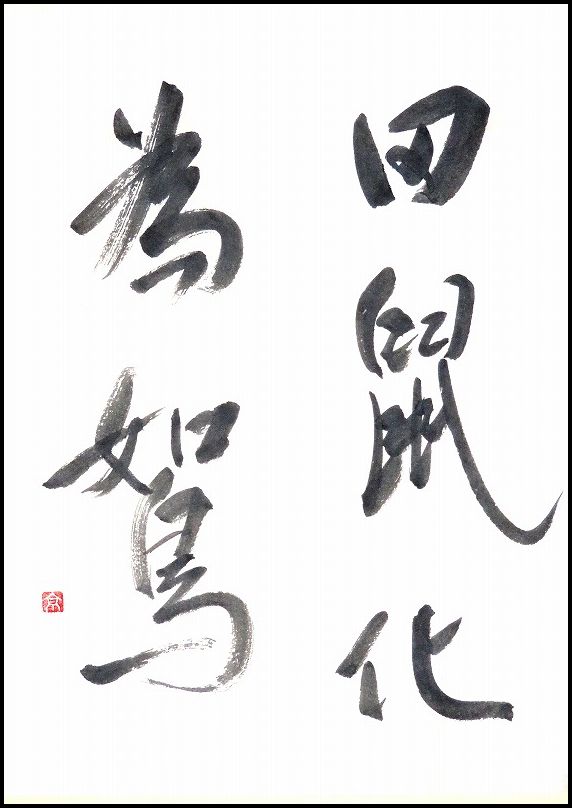 田鼠化
為鴽